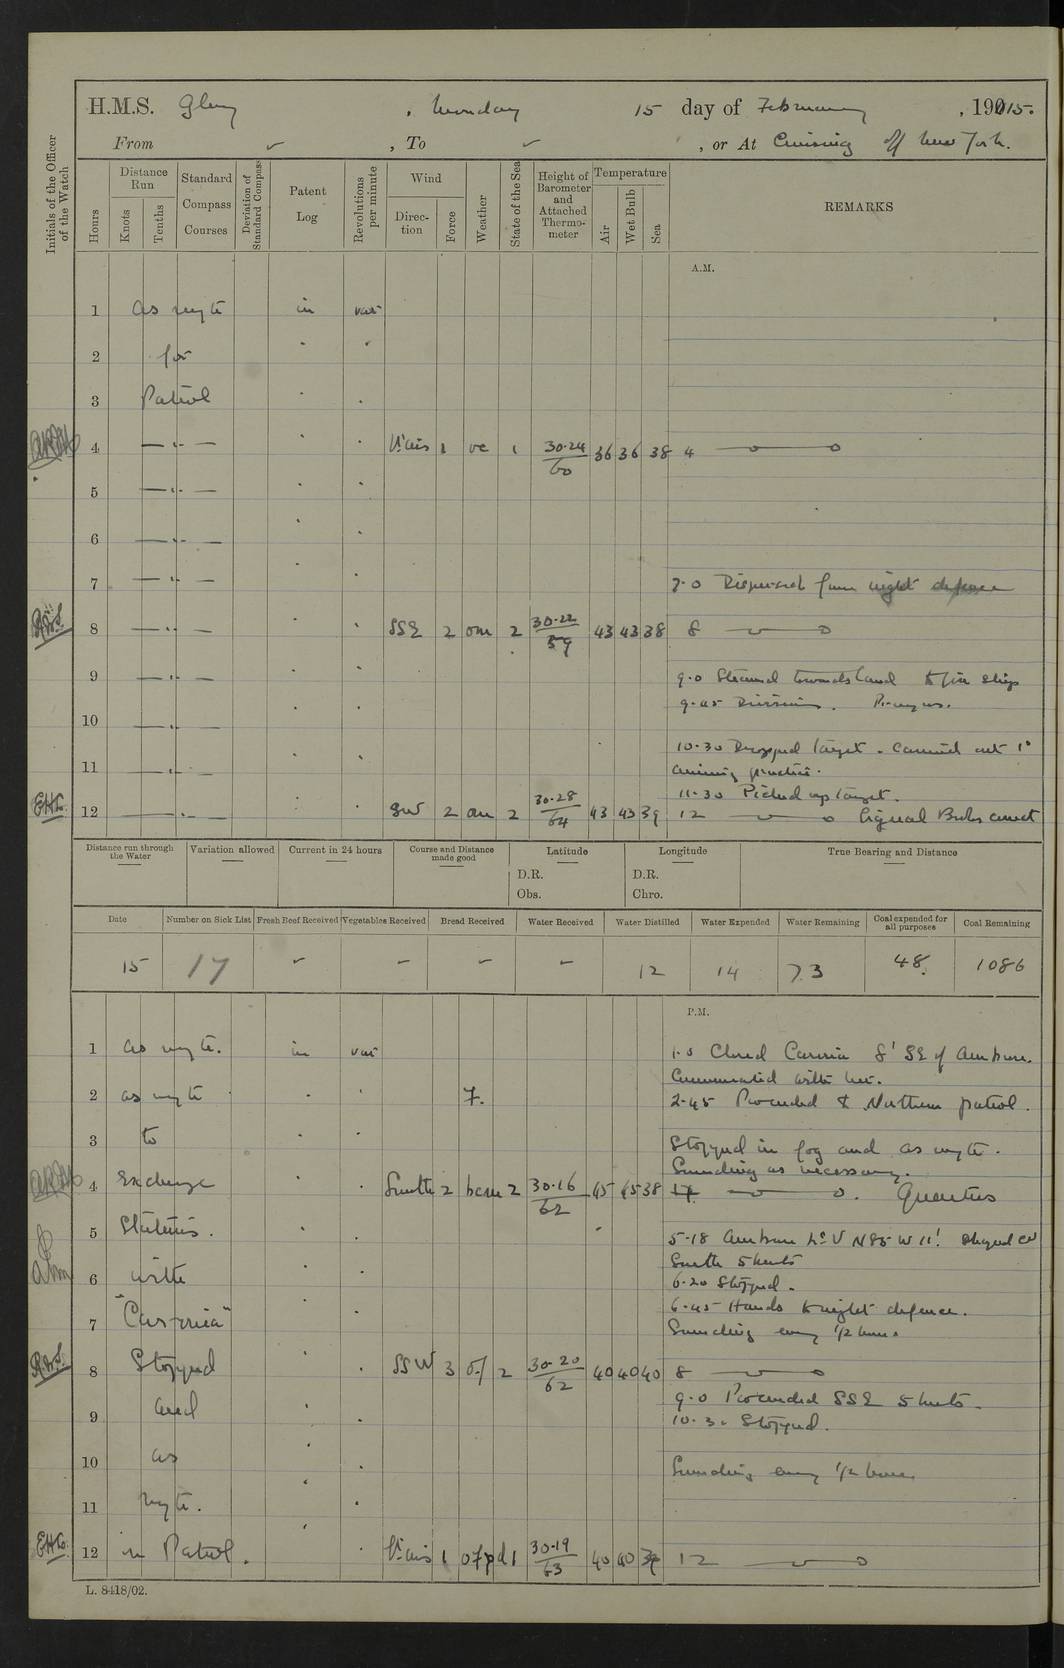 H.M.S. Glory, Monday 15 day of February, 1915.
From ✓, To ✓, or At Cruising off New York.
Initials of the Officer of the Watch
Hours
Distance Run
Knots
Tenths
Standard Compass Courses
Deviation of Standard Compass
Patent Log
Revolutions per minute
Wind
Direction
Force
Weather
State of the Sea
Height of Barometer and Attached Thermometer
Temperature
Air
Wet Bulb
Sea
REMARKS
A.M.
1 as reqte in var
2 for
3 Patrol
4 V'ais 1 1 30.24/60 36 36 38 4
5
6
7 7.0 Dispersed from night defence
R.W.S. 8 SSE 2 om 2 30.22/59 43 43 38 8
9 9.0 Steamed towards land to join ship
9.45 Divisions. Prayers.
10
10.30 Dropped target. Carried out 1"
11 aiming practice.
11.30 Picked up target.
12 SW 2 om 2 30.28/64 43 43 39 12 Signal Books correct
Distance run through the Water
Variation allowed
Current in 24 hours
Course and Distance made good
Latitude
D.R.
Obs.
Longitude
D.R.
Chro.
True Bearing and Distance
Date Number on Sick List Fresh Beef Received Vegetables Received Bread Received Water Received Water Distilled Water Expended Water Remaining Coal expended for all purposes Coal Remaining
15 17 - - - - 12 14 73 48 1086
P.M.
1 as reqte. in var 1.0 Closed Caronia 8' SE of Ambrose.
Communicated with her.
2 as reqte f. 2.45 Proceeded to Northern patrol.
3 to Stopped in fog and as reqte.
Sounding as necessary.
4 exchange South 2 2 30.16/62 45 45 38 Quarters
5 Stations. 5.18 Ambrose Lt V N85W 11'.
South 5 knots
6 with 6.20 Stopped.
6.45 Hands to night defence.
7 "Caronia" Sounding every 1/2 hour
R.W.S. 8 Stopped SSW 3 of 2 30.20/62 40 40 40 8
9 and 9.0 Proceeded SSE 5 knots.
10.30 Stopped.
10 as Sounding every 1/2 hour
11 reqte.
12 on Patrol. V'ais 1 ofpd 1 30.19/63 40 40 39 12
L. 8418/02.